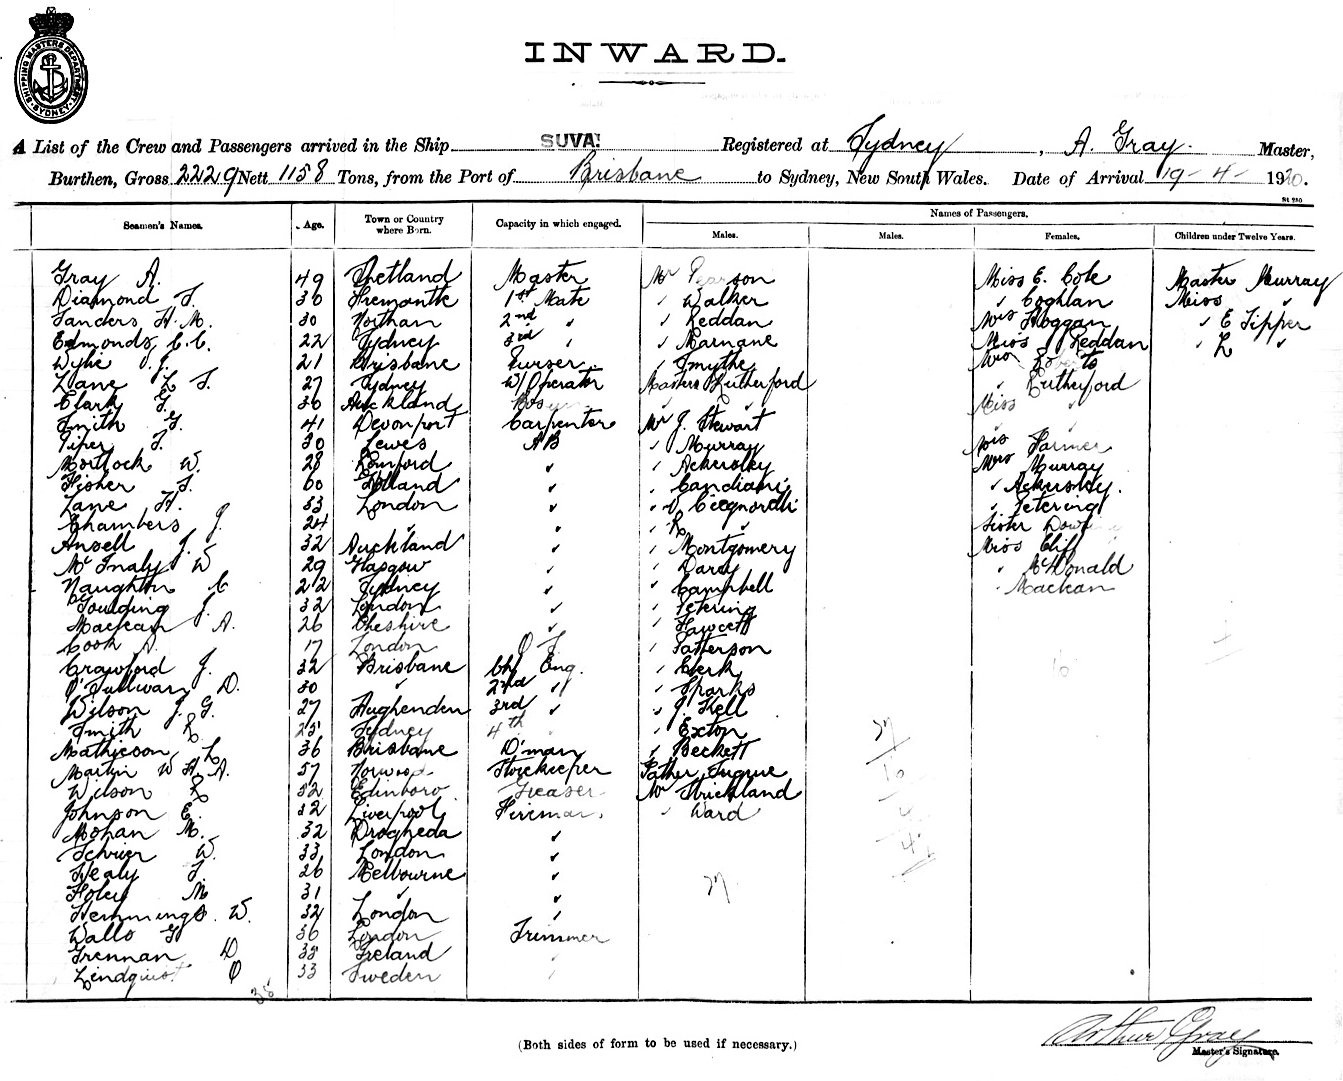 SHIPPING MASTERS DEPARTMENT
SYDNEY
INWARD.
A List of the Crew and Passengers arrived in the Ship SUVA. Registered at Sydney, A. Gray. Master,
Burthen, Gross 2229 Nett 1158 Tons, from the Port of Brisbane to Sydney, New South Wales. Date of Arrival 19-4-1920.
Seamen's Names. Age. Town or Country where Born. Capacity in which engaged. Names of Passengers.
Males. Males. Females. Children under Twelve Years.
Gray A. 49 Shetland Master Mr Pearson Miss E. Cole Master Murray
Diamond F. 30 Fremantle 1st Mate " Walker " Coghlan Miss "
Sanders H. M. 30 Northam 2nd " " Reddan Mrs Hoggan " E Tipper
Edmonds C. C. 22 Sydney 3rd " " Marnane Miss Reddan " L "
Wylie J. 21 Brisbane Purser " Smythe Mrs
Lane L F. 27 Sydney W/Operator Masters Rutherford " Rutherford
Clark G. 36 Auckland " " Miss "
Smith G. 41 Devonport Carpenter Mr J. Stewart
Piper F. 30 Lewes AB " Murray Mrs Farmer
Mortlock W. 28 Romford " " Ackersley Mrs Murray
Fisher F. 60 Holland " " Candiani " Ackersley.
Lane H. 53 London " " Petering
Chambers J. 24 " " " R " Sister
Ansell J. 32 Auckland " " Montgomery Miss Cliff
W 29 Glasgow " " Darcy " McDonald
Naughton C 22 Sydney " " Campbell " Mackan
Goulding J. 32 London " " Petering
Mackean A. 26 Cheshire " " Fawcett
Cook A. 17 London O S. " Patterson
Crawford J. 32 Brisbane Chf Eng. " Clerk
O'Sullivan D. 30 " 2nd " " Sparks
Wilson J. G. 27 Hughenden 3rd " " J. Kell
Smith R. 25 Sydney 4th " " Exton
Mathieson L 36 Brisbane D'man " Beckett
Martin W H. A. 57 Norwood Storekeeper Father
Wilson R 32 Edinboro Greaser Mr Strickland
Johnson E. 32 Liverpool Fireman " Ward
Mohan M. 32 Drogheda "
W. 33 London "
Healy F. 26 Melbourne " 27
Foley M 31 " "
Hemmings W. 32 London "
Walls G 36 London Trimmer
Grennan D 38 Ireland "
Lindquist O 33 Sweden "
35
16
Arthur Gray
(Both sides of form to be used if necessary.)
Master's Signature.